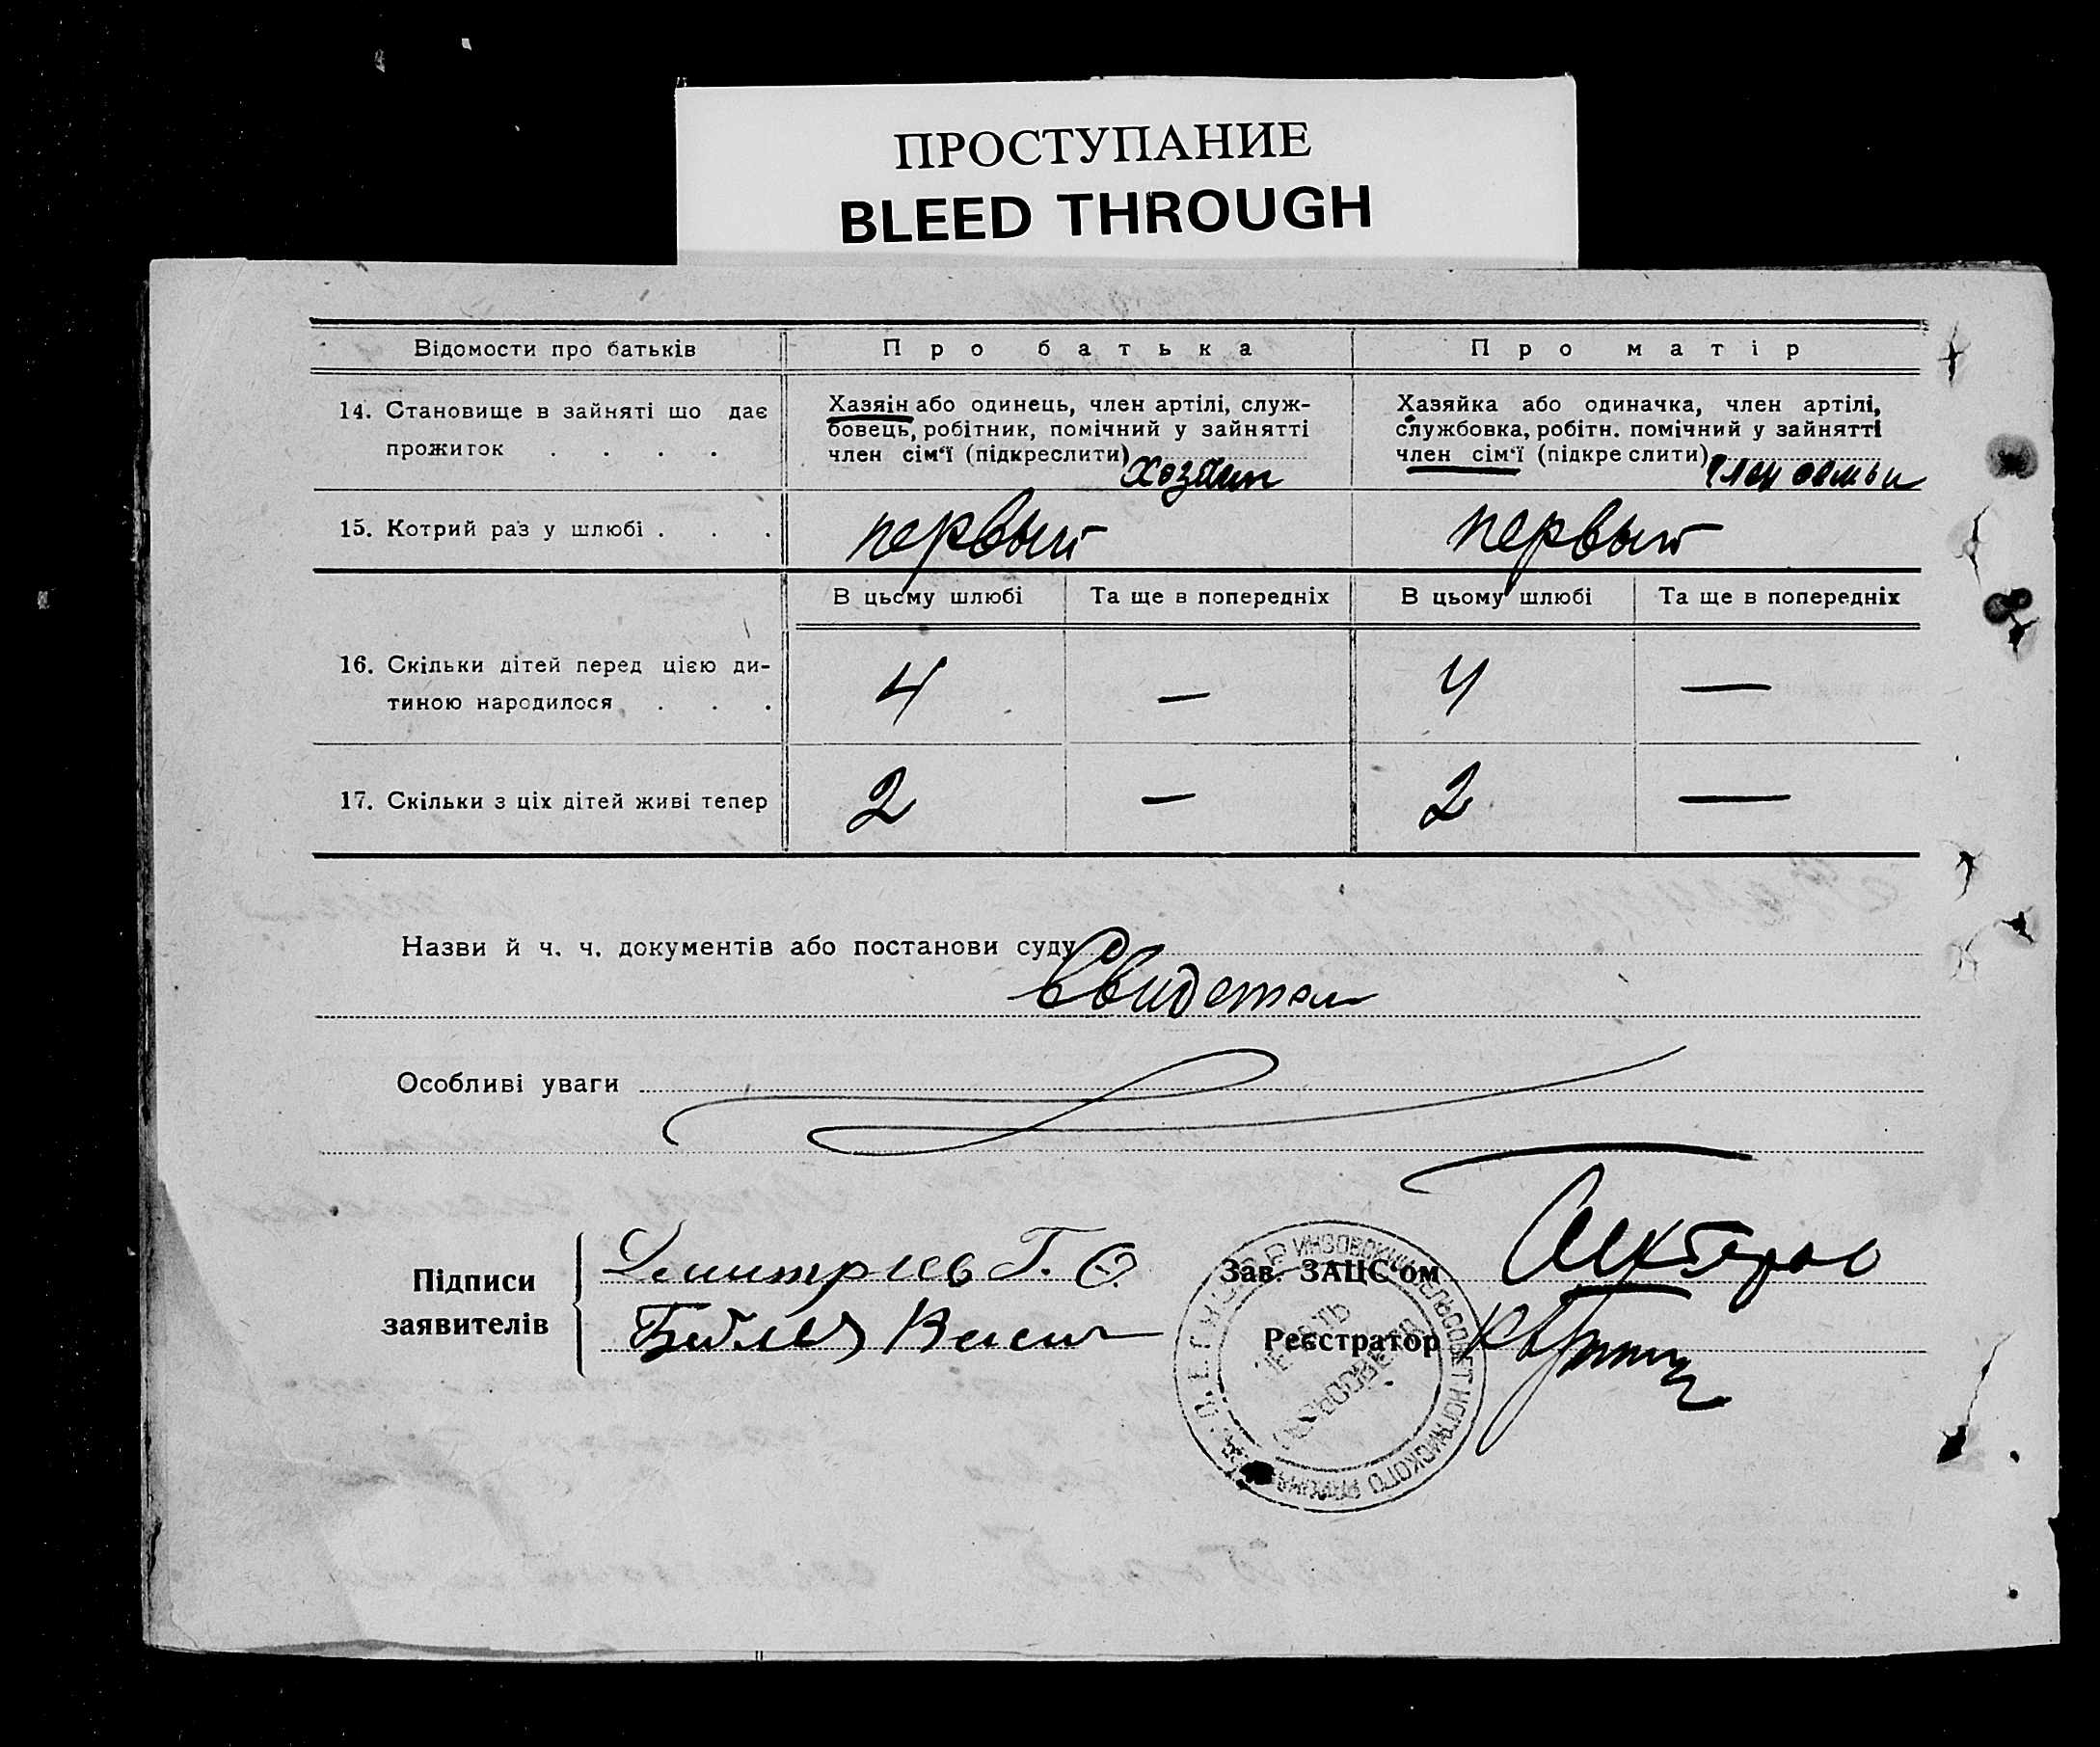 ПРОСТУПАНИЕ
BLEED THROUGH
Відомости про батьків
Про батька
Про матір
14. Становище в зайняті шо дає
прожиток . . . .
Хазяін або одинець, член артілі, служ-
бовець, робітник, помічний у зайнятті
член сім'ї (підкреслити)
Хозяин
Хазяйка або одиначка, член артілі,
службовка, робітн. помічний у зайнятті
член сім'ї (підкре слити)
член семьи
15. Котрий раз у шлюбі . . .
первый
первый
В цьому шлюбі
Та ще в попередніх
В цьому шлюбі
Та ще в попередніх
16. Скільки дітей перед цією ди-
тиною народилося . . .
4 — 4 —
17. Скільки з ціх дітей живі тепер
2 — 2 —
Назви й ч. ч. документів або постанови суду
Свидетели
Особливі уваги
Підписи
заявителів
Димитриев Г.
Зав. ЗАЦС'ом
Реєстратор